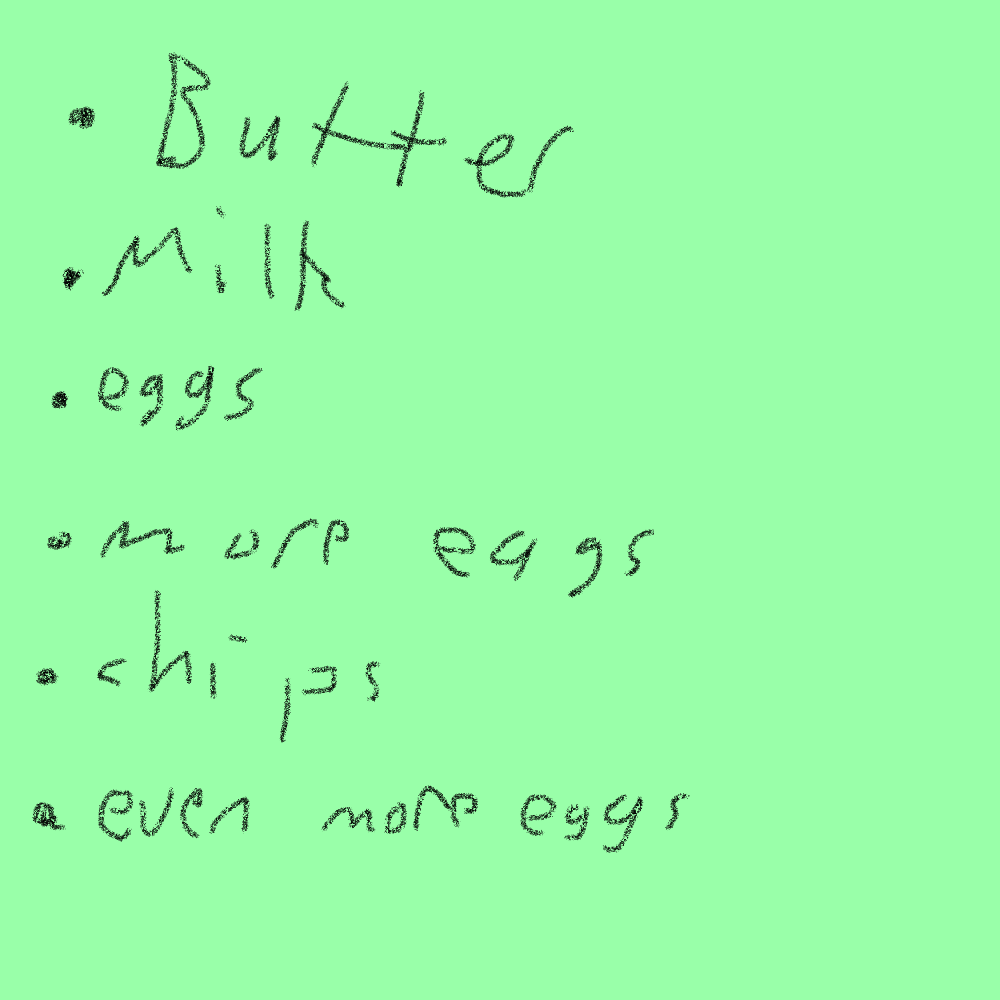 • Butter
• Milk
• eggs
• more eggs
• chips
• even more eggs